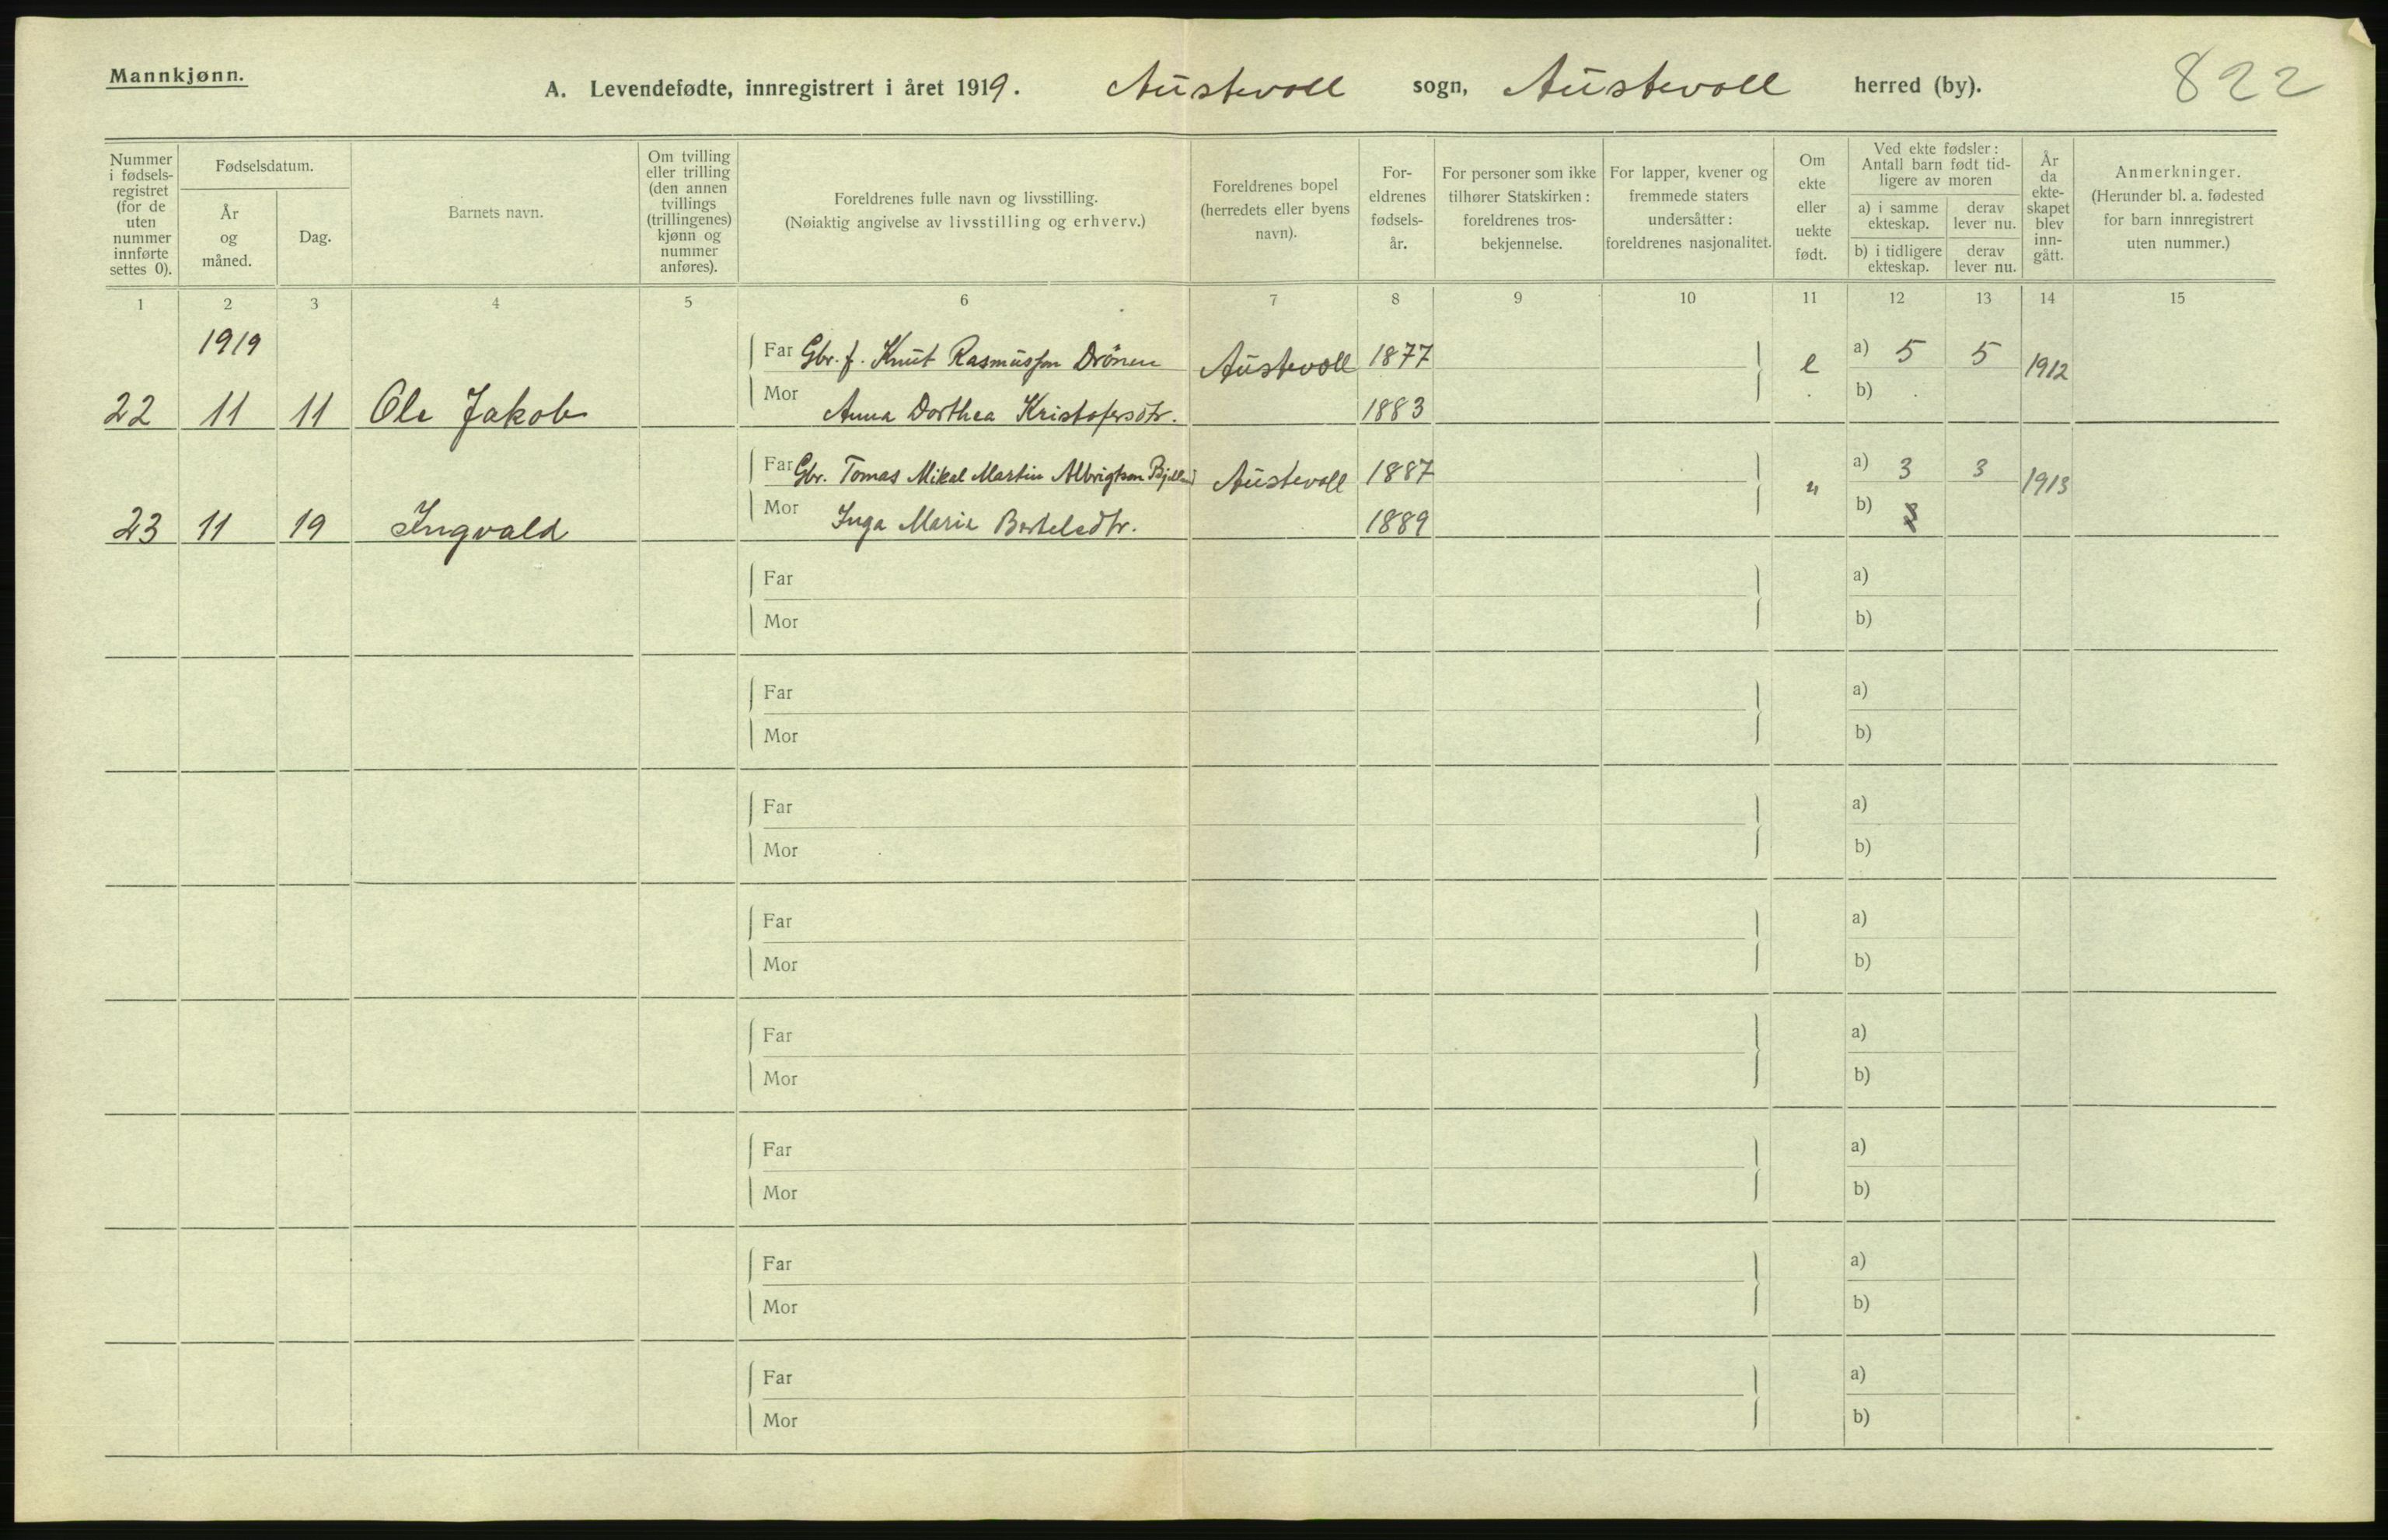 Mannkjønn.
A. Levendefødte, innregistrert i året 1919. Austevoll sogn, Austevoll herred (by). 822
Nummer i fødsels-registret (for de uten nummer innførte settes 0).
Fødselsdatum.
År og måned.
Dag.
Barnets navn.
Om tvilling eller trilling (den annen tvillings (trillingenes) kjønn og nummer anføres).
Foreldrenes fulle navn og livsstilling.
(Nøiaktig angivelse av livsstilling og erhverv.)
Foreldrenes bopel (herredets eller byens navn).
For-eldrenes fødsels-år.
For personer som ikke tilhører Statskirken: foreldrenes tros-bekjennelse.
For lapper, kvener og fremmede staters undersåtter: foreldrenes nasjonalitet.
Om ekte eller uekte født.
Ved ekte fødsler: Antall barn født tid-ligere av moren
a) i samme ekteskap.
derav lever nu.
b) i tidligere ekteskap.
derav lever nu.
År da ekte-skapet blev inn-gått.
Anmerkninger.
(Herunder bl. a. fødested for barn innregistrert uten nummer.)
1 2 3 4 5 6 7 8 9 10 11 12 13 14 15
1919 Far Gbr. f. Knut Rasmussøn Drönen Austevoll 1877 e a) 5 5 1912
22 11 11 Ole Jakob Mor Anna Dorthea Kristofersdtr. 1883 b)
Far Gbr. Tomas Mikal Martin Albrigtson Austevoll 1887 " a) 3 3 1913
23 11 19 Ingvald Mor Inga Maria Bertelsdtr. 1889 b) 3
Far a)
Mor b)
Far a)
Mor b)
Far a)
Mor b)
Far a)
Mor b)
Far a)
Mor b)
Far a)
Mor b)
Far a)
Mor b)
Far a)
Mor b)